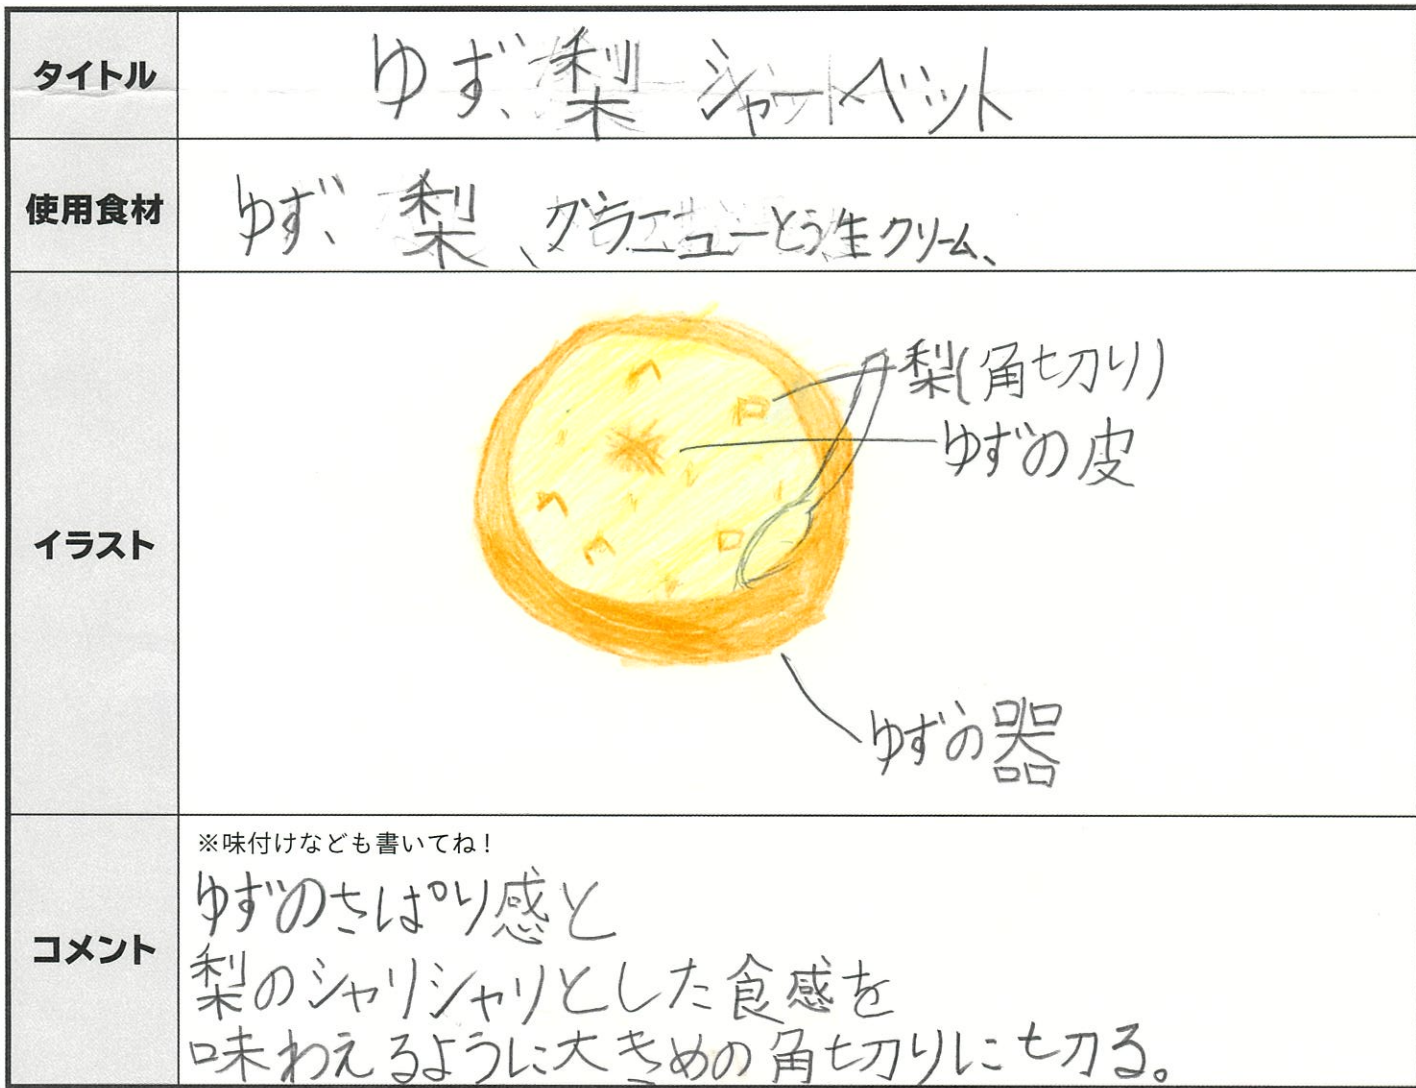 タイトル
ゆず、梨 シャーベット
使用食材
ゆず、梨、グラニューとう生クリーム、
イラスト
梨(角切り)
ゆずの皮
ゆずの器
コメント
※味付けなども書いてね!
ゆずのさぱり感と
梨のシャリシャリとした食感を
味わえるように大きめの角切りに切る。